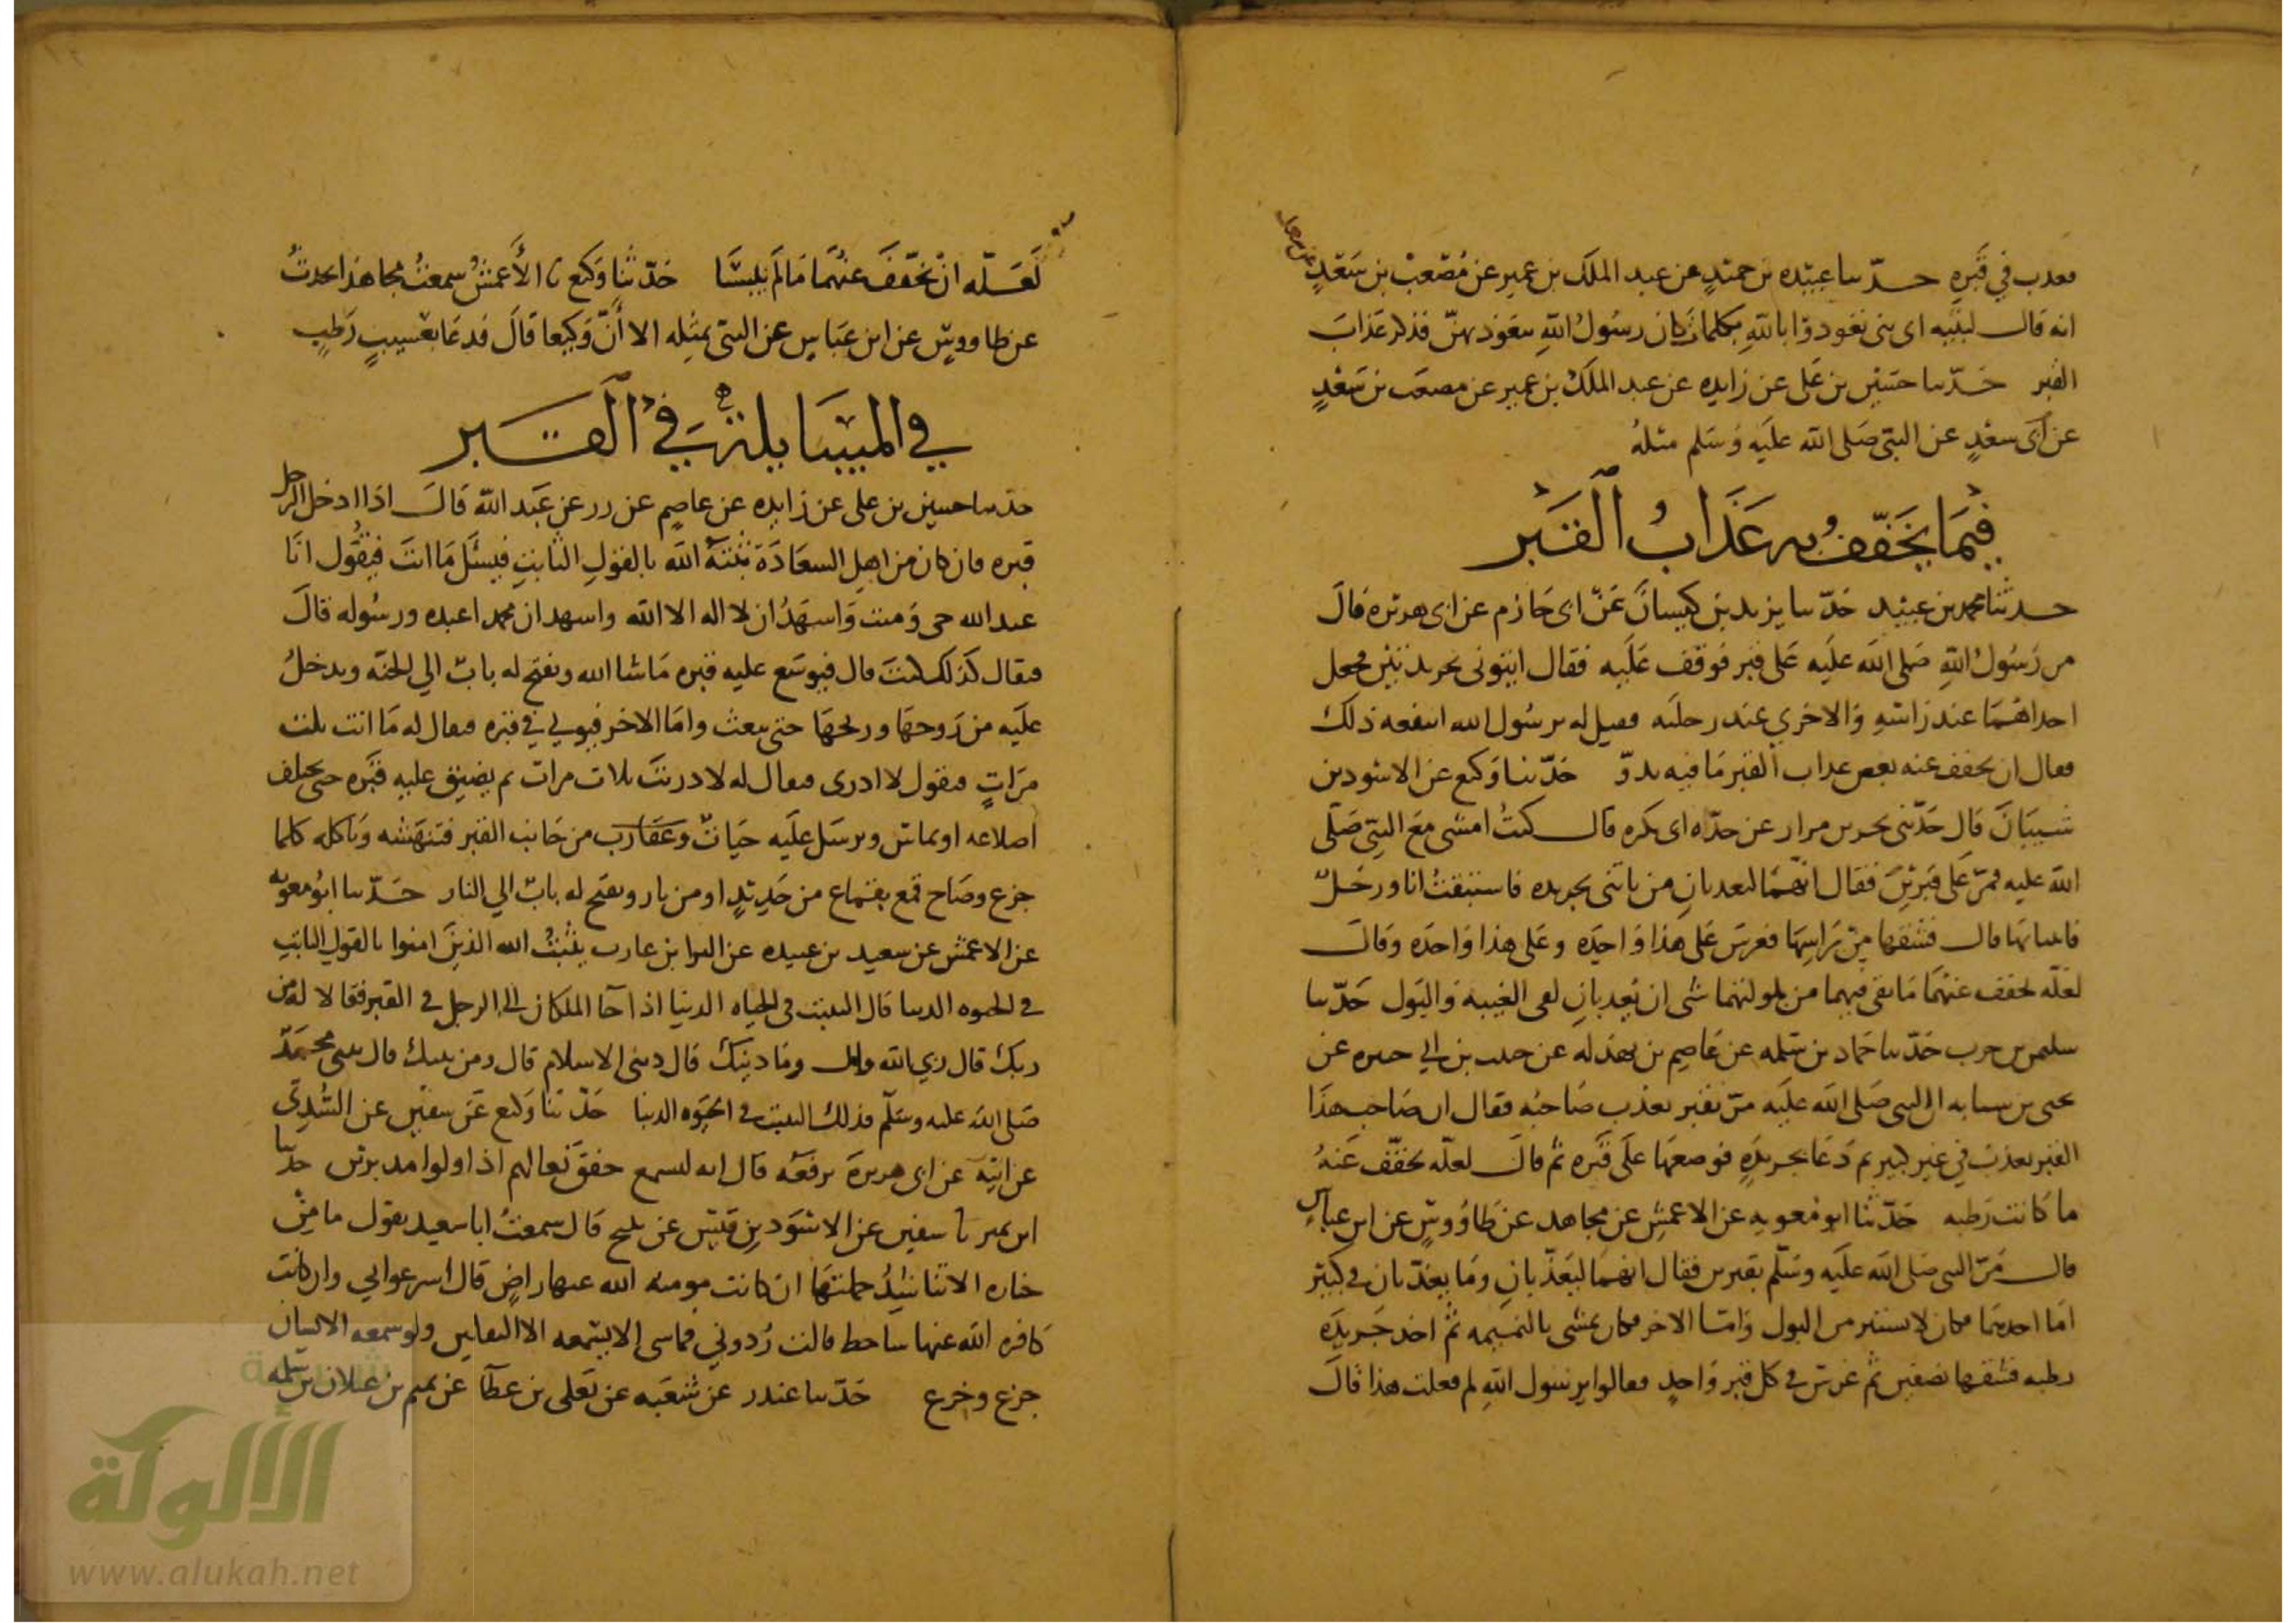 معذب في قبره حدثنا عبيده بن حميد عن عبد الملك بن عمير عن مصعب بن سعد
انه قال لبنيه اى بنى تعوذوا بالله بكلمات كان رسول الله يتعوذ بهن فذكر عذاب
القبر حدثنا حسين بن على عن زايده عن عبد الملك بن عمير عن مصعب بن سعد
عن سعد عن النبى صلى الله عليه وسلم مثله
فيما يخفف به عذاب القبر
حدثنا محمد بن عبيد حدثنا يزيد بن كيسان عن ابى حازم عن ابى هريره قال
مر رسول الله صلى الله عليه على قبر فوقف عليه فقال ايتونى بجريدتين فجعل
احداهما عند راسه والاخرى عند رجليه فقيل له يرسول الله اينفعه ذلك
فقال ان يخفف عنه بعض عذاب القبر ما فيه ندو حدثنا وكيع عن الاسود بن
شيبان قال حدثنى بحر بن مرار عن جده ابى بكره قال كنت امشى مع النبى صلى
الله عليه فمر على قبرين فقال انهما ليعذبان من ياتنى بجريده فاستبقت انا ورجل
فاتيناه بها قال فشقها من راسها فغرس على هذا واحده وعلى هذا واحده وقال
لعله يخفف عنهما ما بقى فيهما من بلولتهما شى ان يعذبان لفى الغيبه والبول حدثنا
سليمن بن حرب حدثنا حماد بن سلمه عن عاصم بن بهدله عن حبيب بن ابي جبيره عن
يحيى بن سيابه ان النبى صلى الله عليه مر بقبر يعذب صاحبه فقال ان صاحب هذا
القبر يعذب في غير كبير ثم دعا بجريده فوضعها على قبره ثم قال لعله يخفف عنه
ما كانت رطبه حدثنا ابو معويه عن الاعمش عن مجاهد عن طاووس عن ابن عباس
قال مر النبى صلى الله عليه وسلم بقبرين فقال انهما ليعذبان وما يعذبان فى كبير
اما احدهما فكان لا يستتر من البول واما الاخر فكان يمشى بالنميمه ثم اخذ جريده
رطبه فشقها نصفين ثم غرس فى كل قبر واحد فقالوا يرسول الله لم فعلت هذا قال
لعله ان يخفف عنهما ما لم ييبسا حدثنا وكيع نا الأعمش سمعت مجاهدا يحدث
عن طاووس عن ابن عباس عن النبى بمثله الا أن وكيعا قال فدعا بعسيب رطب
في المسايلة في القبر
حدثنا حسين بن على عن زايده عن عاصم عن زر عن عبد الله قال اذا ادخل الرجل
قبره فان كان من اهل السعادة ثبته الله بالقول الثابت فيسئل ما انت فيقول انا
عبد الله حى وميت واشهد ان لا اله الا الله واشهد ان محمدا عبده ورسوله قال
فيقال كذلك كنت قال فيوسع عليه قبره ما شا الله ويفتح له باب الي الجنه ويدخل
عليه من روحها وريحها حتى يبعث واما الاخر فيوتي في قبره فيقال له ما انت ثلث
مرات فيقول لا ادرى فيقال له لا دريت ثلاث مرات ثم يضيق عليه قبره حتى يختلف
اضلاعه او تماس ويرسل عليه حيات وعقارب من جانب القبر فتنهشه وتاكله كلما
جزع وصاح قمع بقماع من حديد او من نار ويفتح له باب الي النار حدثنا ابو معويه
عن الاعمش عن سعيد بن عبيده عن البرا بن عازب يثبت الله الذين امنوا بالقول الثابت
فى الحيوه الدنيا قال التثبيت فى الحياه الدنيا اذا جا الملكان الى الرجل فى القبر فقالا له من
ربك قال ربي الله قال وما دينك قال دينى الاسلام قال ومن نبيك قال نبيى محمد
صلى الله عليه وسلم فذلك التثبيت فى الحيوه الدنيا حدثنا وكيع عن سفين عن السدى
عن ابيه عن ابى هريرة يرفعه قال انه ليسمع خفق نعالهم اذا ولوا مدبرين حدثنا
ابن نمير نا سفين عن الاسود بن قيس عن نبيح قال سمعت ابا سعيد يقول ما من
جنازه الا تناشد حملتها ان كانت مومنه الله عنها راض قال اسرعوا بي وان كانت
كافره الله عنها ساخط قالت ردوني فما شى الا يسمعه الا الثقلين ولو سمعه الانسان
جزع وخرع حدثنا غندر عن شعبه عن يعلى بن عطا عن تميم بن غيلان بن سلمه
الألوكة
www.alukah.net